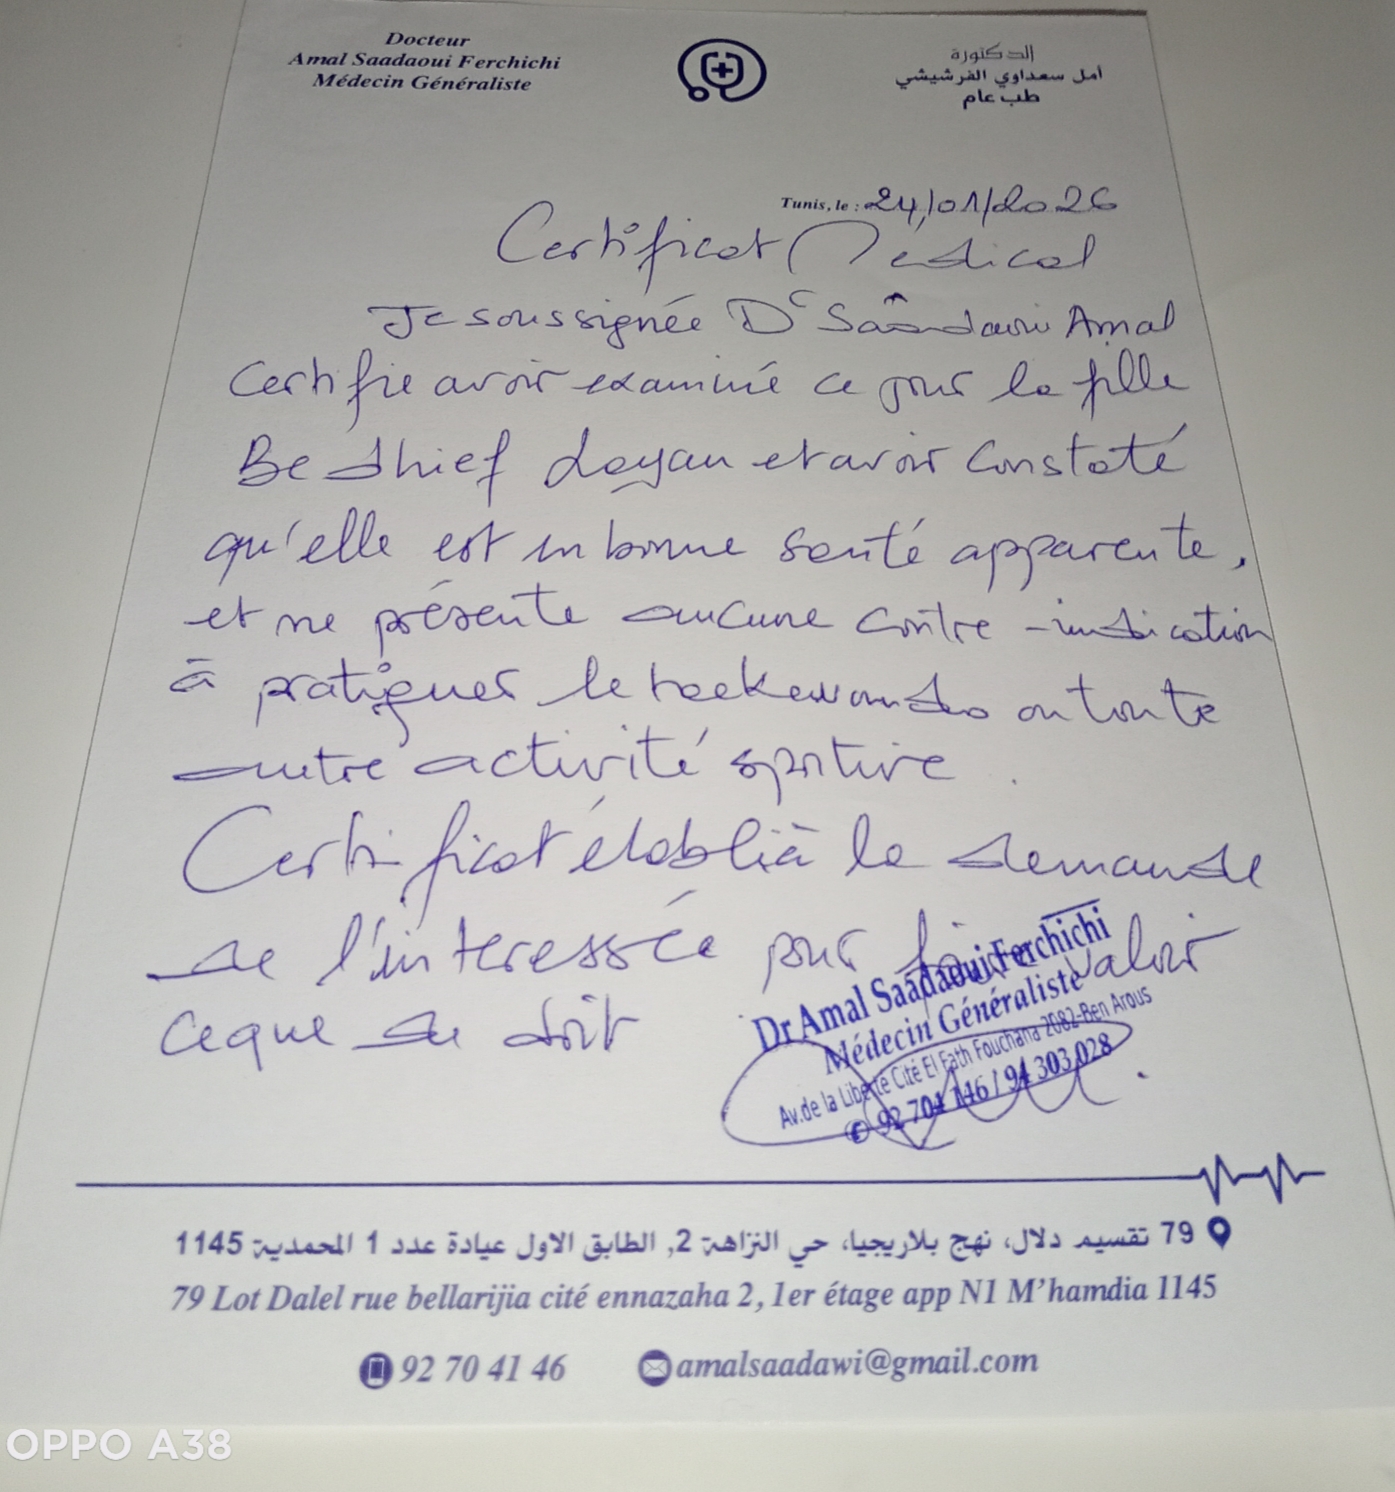 Docteur
Amal Saadaoui Ferchichi
Médecin Généraliste
الدكتورة
أمل سعداوي الفرشيشي
طب عام
Tunis, le : 24/01/2026
Certificat Médical
Je soussignée Dr Saâdaoui Amal
Certifie avoir examiné ce jour la fille
Bedhief Layan et avoir constaté
qu'elle est en bonne santé apparente,
et ne présente aucune contre-indication
à pratiquer le taekewondo ou toute
autre activité sportive.
Certificat établi à la demande
de l'interessée pour faire valoir
ce que de doit
Dr Amal Saadaoui Ferchichi
Médecin Généraliste
Av.de la Liberté Cité El Fath Fouchana 2082-Ben Arous
92 704 146 / 94 303 028
79 تقسيم دلال، نهج بلاريجيا، حي النزاهة 2, الطابق الاول عيادة عدد 1 المحمدية 1145
79 Lot Dalel rue bellarijia cité ennazaha 2, 1er étage app N1 M'hamdia 1145
92 70 41 46 amalsaadawi@gmail.com
OPPO A38